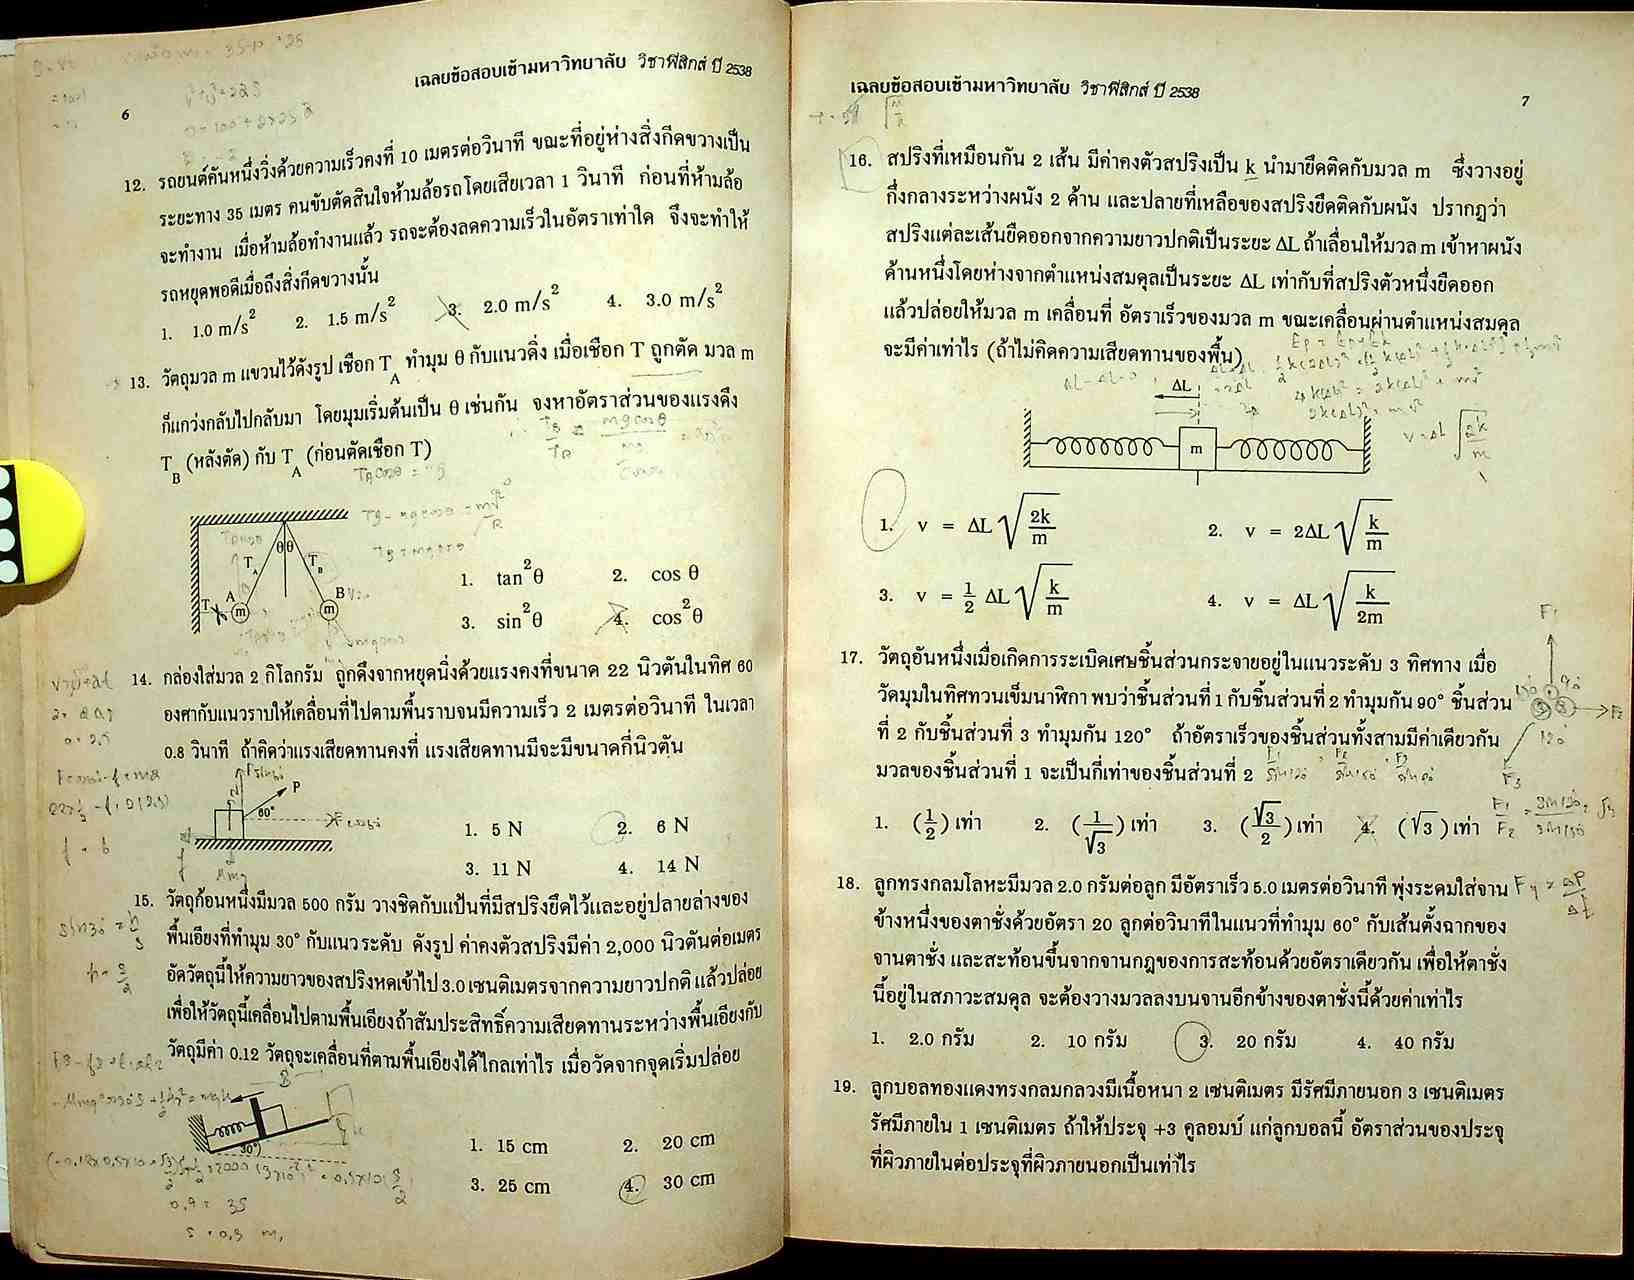 เฉลยข้อสอบเข้ามหาวิทยาลัย วิชาฟิสิกส์ ปี 2538
6
12. รถยนต์คันหนึ่งวิ่งด้วยความเร็วคงที่ 10 เมตรต่อวินาที ขณะที่อยู่ห่างสิ่งกีดขวางเป็น
ระยะทาง 35 เมตร คนขับตัดสินใจห้ามล้อรถโดยเสียเวลา 1 วินาที ก่อนที่ห้ามล้อ
จะทำงาน เมื่อห้ามล้อทำงานแล้ว รถจะต้องลดความเร็วในอัตราเท่าใด จึงจะทำให้
รถหยุดพอดีเมื่อถึงสิ่งกีดขวางนั้น
1. 1.0 m/s² 2. 1.5 m/s² 3. 2.0 m/s² 4. 3.0 m/s²
13. วัตถุมวล m แขวนไว้ดังรูป เชือก T_A ทำมุม θ กับแนวดิ่ง เมื่อเชือก T ถูกตัด มวล m
ก็แกว่งกลับไปกลับมา โดยมุมเริ่มต้นเป็น θ เช่นกัน จงหาอัตราส่วนของแรงดึง
T_B (หลังตัด) กับ T_A (ก่อนตัดเชือก T)
θ θ
T_A T_B
A B
T m m
1. tan²θ 2. cos θ
3. sin²θ 4. cos²θ
14. กล่องใส่มวล 2 กิโลกรัม ถูกดึงจากหยุดนิ่งด้วยแรงคงที่ขนาด 22 นิวตันในทิศ 60
องศากับแนวราบให้เคลื่อนที่ไปตามพื้นราบจนมีความเร็ว 2 เมตรต่อวินาที ในเวลา
0.8 วินาที ถ้าคิดว่าแรงเสียดทานคงที่ แรงเสียดทานมีจะมีขนาดกี่นิวตัน
P
60°
1. 5 N 2. 6 N
3. 11 N 4. 14 N
15. วัตถุก้อนหนึ่งมีมวล 500 กรัม วางชิดกับแป้นที่มีสปริงยึดไว้และอยู่ปลายล่างของ
พื้นเอียงที่ทำมุม 30° กับแนวระดับ ดังรูป ค่าคงตัวสปริงมีค่า 2,000 นิวตันต่อเมตร
อัดวัตถุนี้ให้ความยาวของสปริงหดเข้าไป 3.0 เซนติเมตรจากความยาวปกติ แล้วปล่อย
เพื่อให้วัตถุนี้เคลื่อนไปตามพื้นเอียงถ้าสัมประสิทธิ์ความเสียดทานระหว่างพื้นเอียงกับ
วัตถุมีค่า 0.12 วัตถุจะเคลื่อนที่ตามพื้นเอียงได้ไกลเท่าไร เมื่อวัดจากจุดเริ่มปล่อย
30°
1. 15 cm 2. 20 cm
3. 25 cm 4. 30 cm
เฉลยข้อสอบเข้ามหาวิทยาลัย วิชาฟิสิกส์ ปี 2538
7
16. สปริงที่เหมือนกัน 2 เส้น มีค่าคงตัวสปริงเป็น k นำมายึดติดกับมวล m ซึ่งวางอยู่
กึ่งกลางระหว่างผนัง 2 ด้าน และปลายที่เหลือของสปริงยึดติดกับผนัง ปรากฏว่า
สปริงแต่ละเส้นยืดออกจากความยาวปกติเป็นระยะ ΔL ถ้าเลื่อนให้มวล m เข้าหาผนัง
ด้านหนึ่งโดยห่างจากตำแหน่งสมดุลเป็นระยะ ΔL เท่ากับที่สปริงตัวหนึ่งยืดออก
แล้วปล่อยให้มวล m เคลื่อนที่ อัตราเร็วของมวล m ขณะเคลื่อนผ่านตำแหน่งสมดุล
จะมีค่าเท่าไร (ถ้าไม่คิดความเสียดทานของพื้น)
ΔL
m
1. v = ΔL √(2k/m) 2. v = 2ΔL √(k/m)
3. v = ½ ΔL √(k/m) 4. v = ΔL √(k/2m)
17. วัตถุอันหนึ่งเมื่อเกิดการระเบิดเศษชิ้นส่วนกระจายอยู่ในแนวระดับ 3 ทิศทาง เมื่อ
วัดมุมในทิศทวนเข็มนาฬิกา พบว่าชิ้นส่วนที่ 1 กับชิ้นส่วนที่ 2 ทำมุมกัน 90° ชิ้นส่วน
ที่ 2 กับชิ้นส่วนที่ 3 ทำมุมกัน 120° ถ้าอัตราเร็วของชิ้นส่วนทั้งสามมีค่าเดียวกัน
มวลของชิ้นส่วนที่ 1 จะเป็นกี่เท่าของชิ้นส่วนที่ 2
1. (1/2) เท่า 2. (1/√3) เท่า 3. (√3/2) เท่า 4. (√3) เท่า
18. ลูกทรงกลมโลหะมีมวล 2.0 กรัมต่อลูก มีอัตราเร็ว 5.0 เมตรต่อวินาที พุ่งระดมใส่จาน
ข้างหนึ่งของตาชั่งด้วยอัตรา 20 ลูกต่อวินาทีในแนวที่ทำมุม 60° กับเส้นตั้งฉากของ
จานตาชั่ง และสะท้อนขึ้นจากจานกฎของการสะท้อนด้วยอัตราเดียวกัน เพื่อให้ตาชั่ง
นี้อยู่ในสภาวะสมดุล จะต้องวางมวลลงบนจานอีกข้างของตาชั่งนี้ด้วยค่าเท่าไร
1. 2.0 กรัม 2. 10 กรัม 3. 20 กรัม 4. 40 กรัม
19. ลูกบอลทองแดงทรงกลมกลวงมีเนื้อหนา 2 เซนติเมตร มีรัศมีภายนอก 3 เซนติเมตร
รัศมีภายใน 1 เซนติเมตร ถ้าให้ประจุ +3 คูลอมบ์ แก่ลูกบอลนี้ อัตราส่วนของประจุ
ที่ผิวภายในต่อประจุที่ผิวภายนอกเป็นเท่าไร